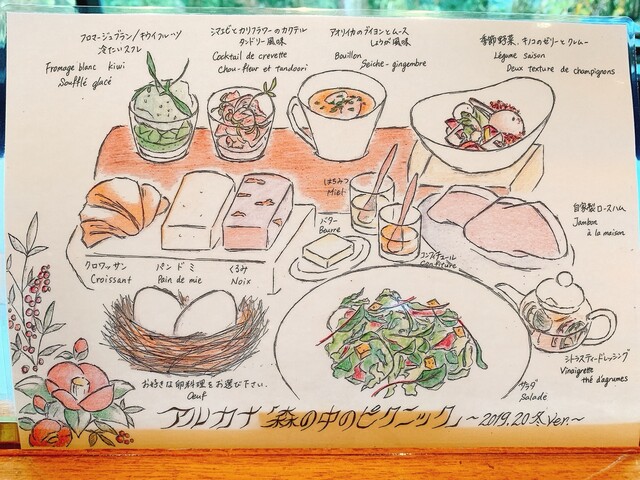 フロマージュブラン/キウイフルーツ
冷たいスフレ
Fromage blanc kiwi
Soufflé glacé
シマエビとカリフラワーのカクテル
タンドリー風味
Cocktail de crevette
Chou-fleur et tandoori
アオリイカのブイヨンとムース
しょうが風味
Bouillon
Seiche-gingembre
季節野菜、キノコのゼリーとクレムー
Légume saison
Deux texture de champignons
はちみつ
Miel
バター
Beurre
コンフィチュール
Confiture
自家製ロースハム
Jambon
à la maison
クロワッサン
Croissant
パン ド ミ
Pain de mie
くるみ
Noix
シトラスティードレッシング
Vinaigrette
thé d'agrumes
お好きな卵料理をお選び下さい。
Oeuf
サラダ
Salade
アルカナ「森の中のピクニック」～2019.20冬Ver.～